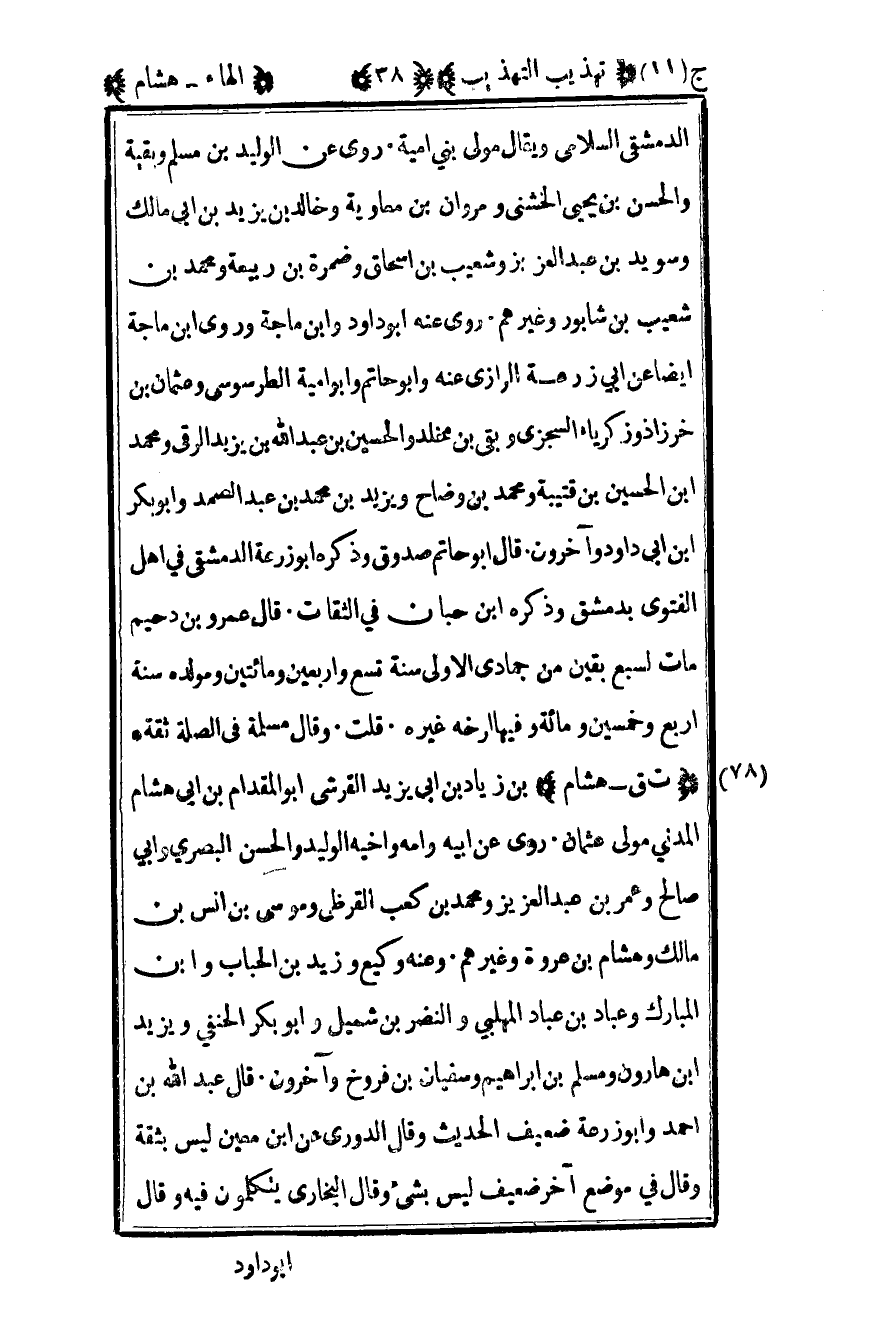 ج (١١) ﴿ تهذيب التهذيب ﴾ ﴿ ٣٨ ﴾ ﴿ الهاء ـ هشام ﴾
الدمشقى السلامى ويقال مولى بني امية ٠ روى عن الوليد بن مسلم وبقية
والحسن بن يحيى الخشنى و مروان بن معاوية وخالد بن يزيد بن ابي مالك
وسويد بن عبدالعزيز وشعيب بن اسحاق وضمرة بن ربيعة ومحمد بن
شعيب بن شابور وغيرهم ٠ روى عنه ابوداود وابن ماجة وروى ابن ماجة
ايضا عن ابي زرعة الرازى عنه وابوحاتم وابوامية الطرسوسى وعثمان بن
خرزاذ وزكرياء السجزى وبقى بن مخلد والحسين بن عبدالله بن يزيد الرقى ومحمد
ابن الحسين بن قتيبة ومحمد بن وضاح ويزيد بن محمد بن عبد الصمد وابوبكر
ابن ابي داود وآخرون ٠ قال ابوحاتم صدوق وذكره ابوزرعة الدمشقى في اهل
الفتوى بدمشق وذكره ابن حبان في الثقات ٠ قال عمرو بن دحيم
مات لسبع بقين من جمادى الاولى سنة تسع واربعين ومائتين ومولده سنة
اربع وخمسين و مائة و فيها ارخه غيره ٠ قلت ٠ وقال مسلمة فى الصلة ثقة *
(٧٨) ﴿ ت ق ـ هشام ﴾ بن زياد بن ابي يزيد القرشى ابوالمقدام بن ابي هشام
المدني مولى عثمان ٠ روى عن ابيه وامه واخيه الوليد والحسن البصري وابي
صالح وعمر بن عبدالعزيز ومحمد بن كعب القرظى وموسى بن انس بن
مالك وهشام بن عروة وغيرهم ٠ وعنه وكيع وزيد بن الحباب و ابن
المبارك وعباد بن عباد المهلبي و النضر بن شميل وابو بكر الحنفي ويزيد
ابن هارون ومسلم بن ابراهيم وسفيان بن فروخ وآخرون ٠ قال عبد الله بن
احمد وابوزرعة ضعيف الحديث وقال الدورى عن ابن معين ليس بثقة
وقال في موضع آخر ضعيف ليس بشئ وقال البخارى يتكلمون فيه و قال
ابوداود